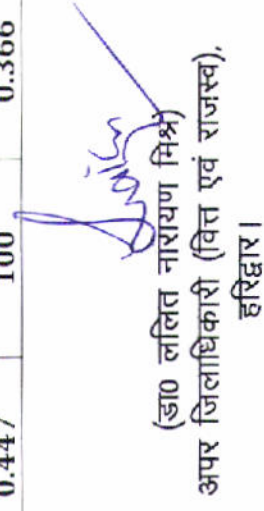 0.447 100 0.366
(डा0 ललित नारायण मिश्र)
अपर जिलाधिकारी (वित्त एवं राजस्व),
हरिद्वार।